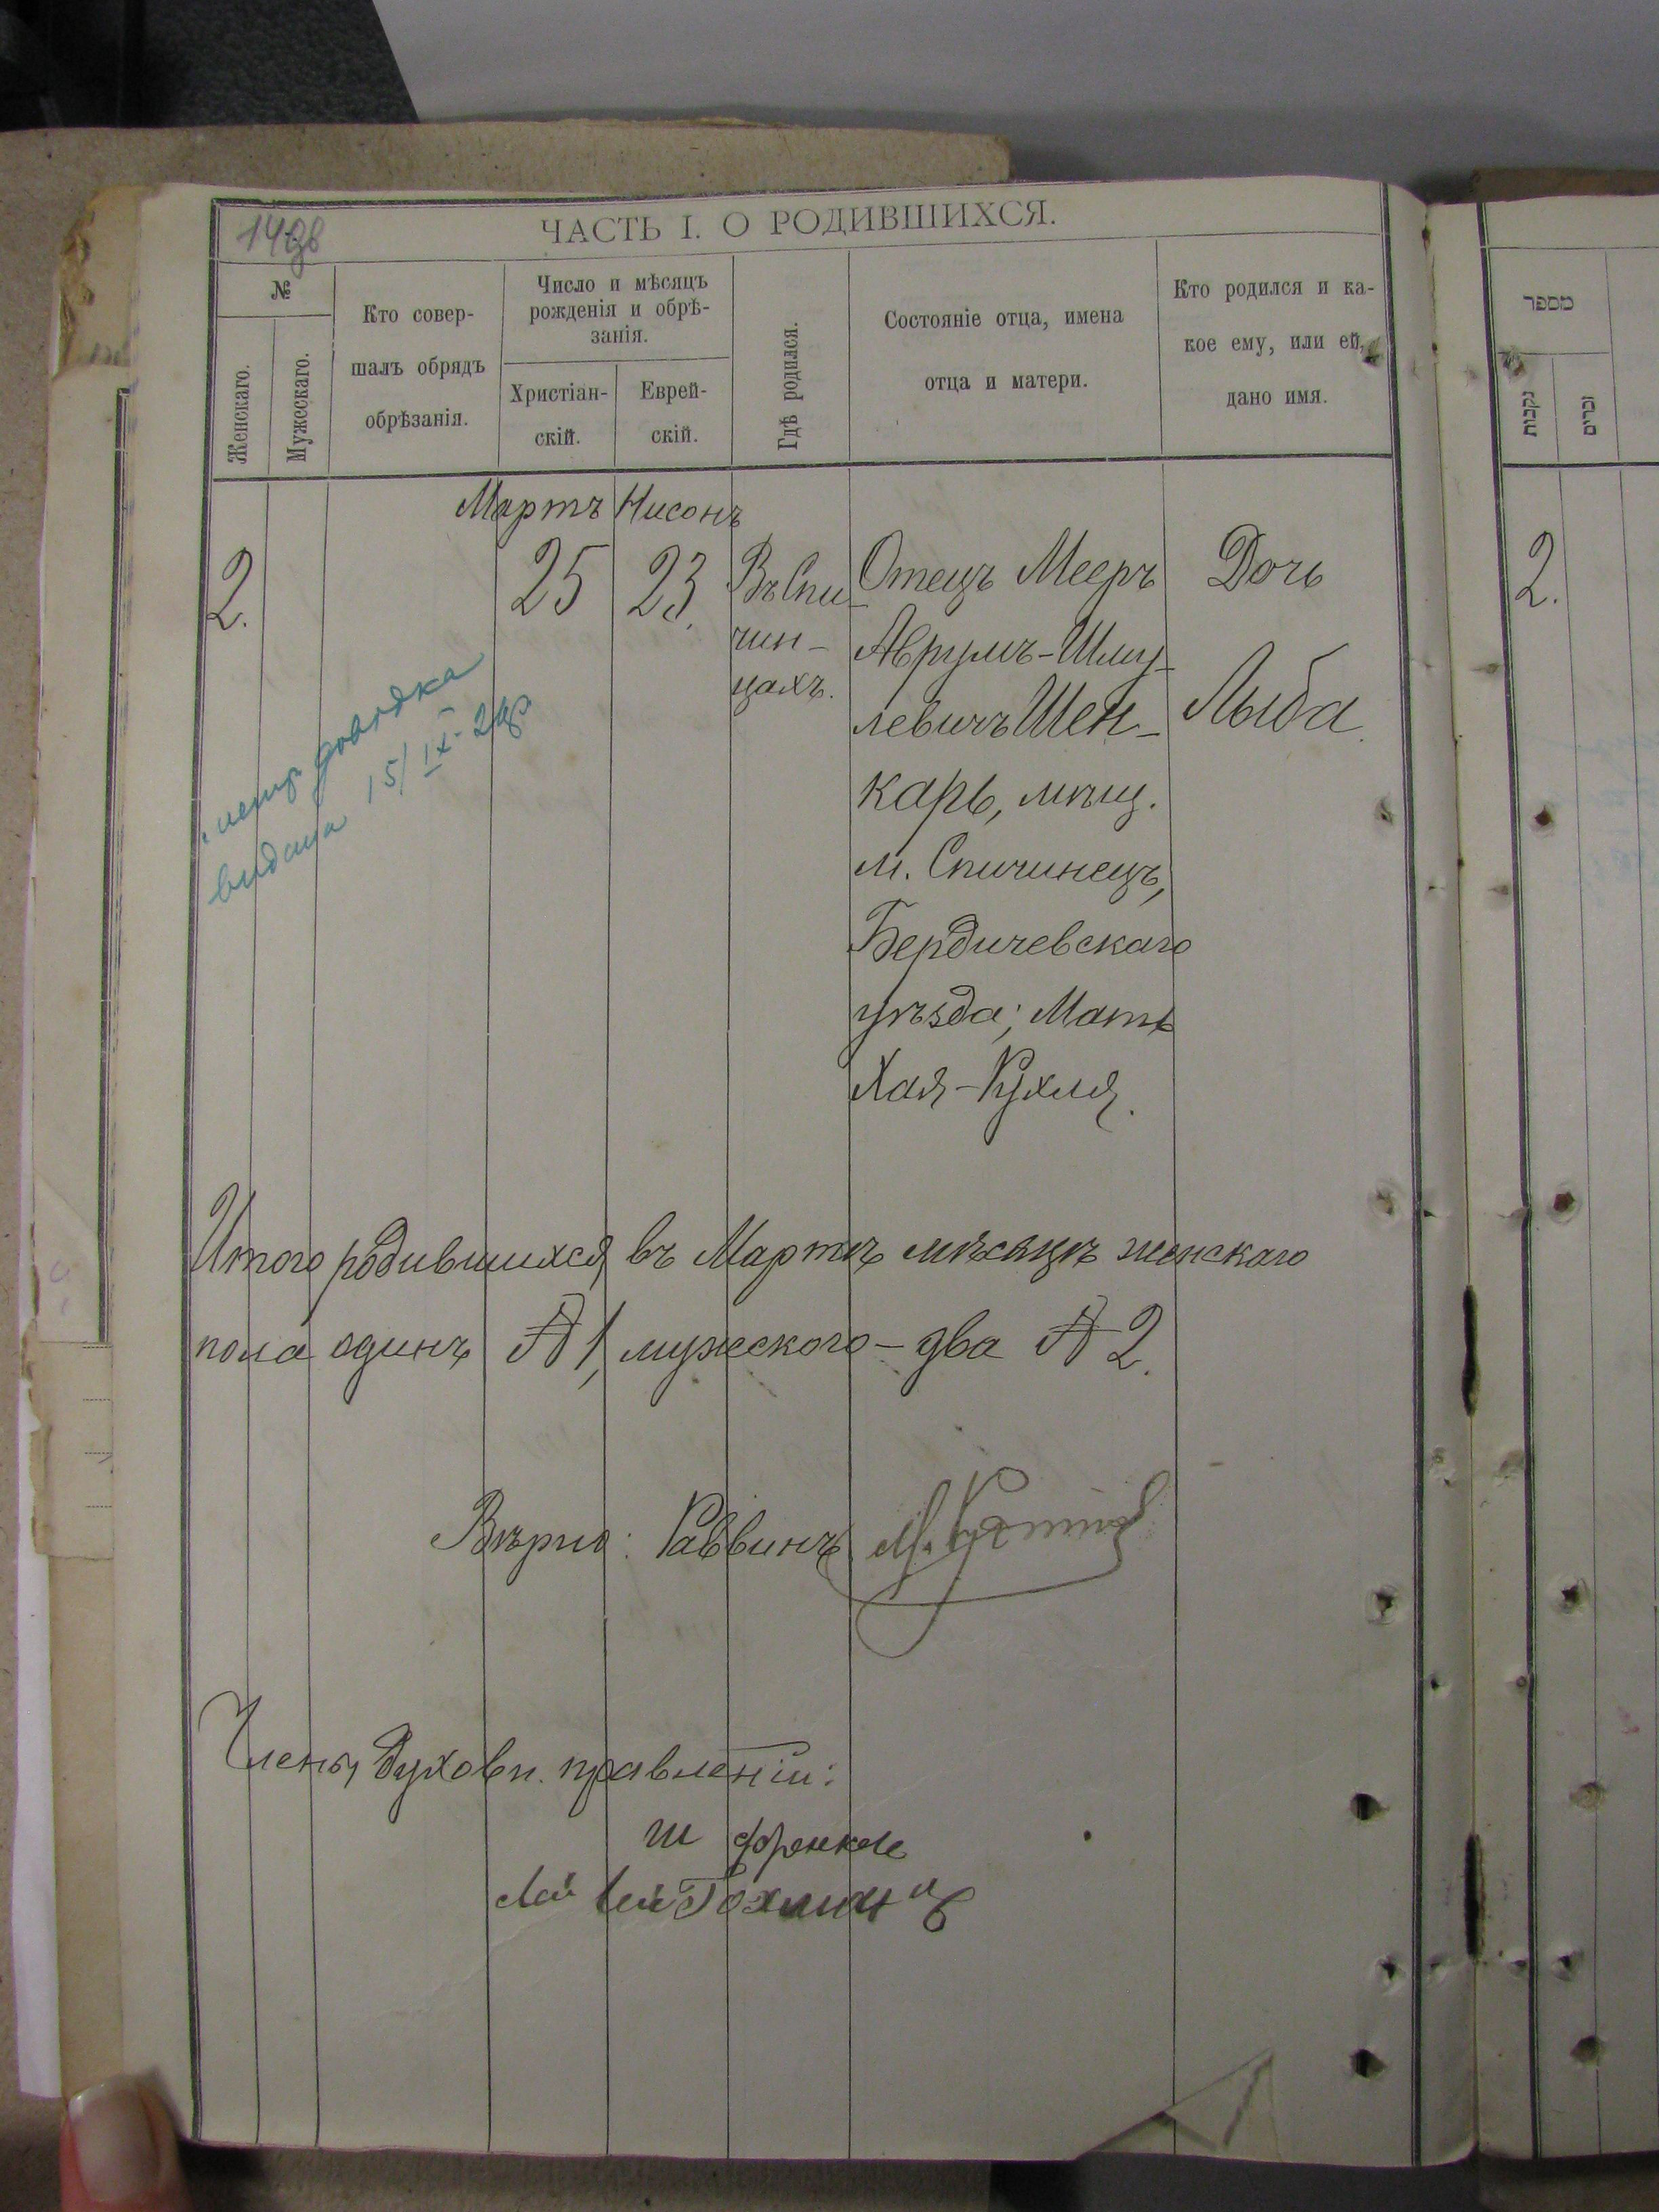 14зв
ЧАСТЬ I. О РОДИВШИХСЯ.
№
Женскаго.
Мужескаго.
Кто совер-
шалъ обрядъ
обрѣзанія.
Число и мѣсяцъ
рожденія и обрѣ-
занія.
Христіан-
скій.
Еврей-
скій.
Гдѣ родился.
Состояніе отца, имена
отца и матери.
Кто родился и ка-
кое ему, или ей,
дано имя.
Мартъ Нисонъ
2.
25
23.
Въ Спи-
чин-
цахъ.
Отецъ Мееръ
Аврумъ-Шму-
левичъ Шен-
каръ, мѣщ.
м. Спичинецъ,
Бердичевскаго
уѣзда; Мать
Хая-Рухля.
Дочь
Лыба.
довідка
видана 15/IX-24р
Итого родившихся въ Мартѣ мѣсяцѣ женскаго
пола одинъ № 1, мужеского – два № 2.
Вѣрно: Раввинъ
Члены духовн. правленій:
Ш Френкель
מספר
נקבות
זכרים
2.